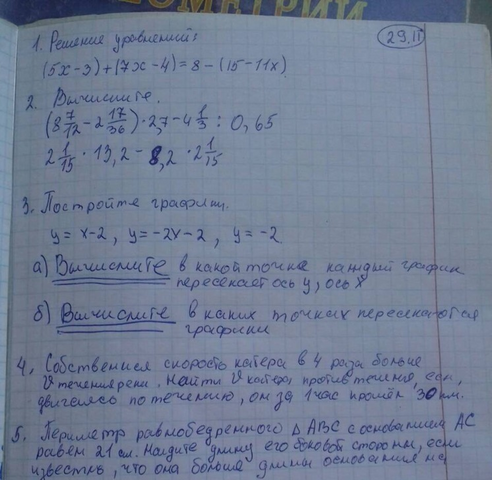 ГЕОМЕТРИИ
29.11
1. Решение уравнений:
(5x-3)+(7x-4)=8-(15-11x)
2. Вычислите.
(8 7/12 - 2 17/36) · 2,7 - 4 1/3 : 0,65
2 1/15 · 13,2 - 8,2 · 2 1/15
3. Постройте графики.
y = x-2, y = -2x-2, y = -2
а) Вычислите в какой точке каждый график
пересекает ось y, ось x
б) Вычислите в каких точках пересекаются
графики
4. Собственная скорость катера в 4 раза больше
V течения реки. Найти V катера против течения, если,
двигаясь по течению, он за 1 час прошёл 30 км.
5. Периметр равнобедренного Δ ABC с основанием AC
равен 21 см. Найдите длину его боковой стороны, если
известно, что она больше длины основания на